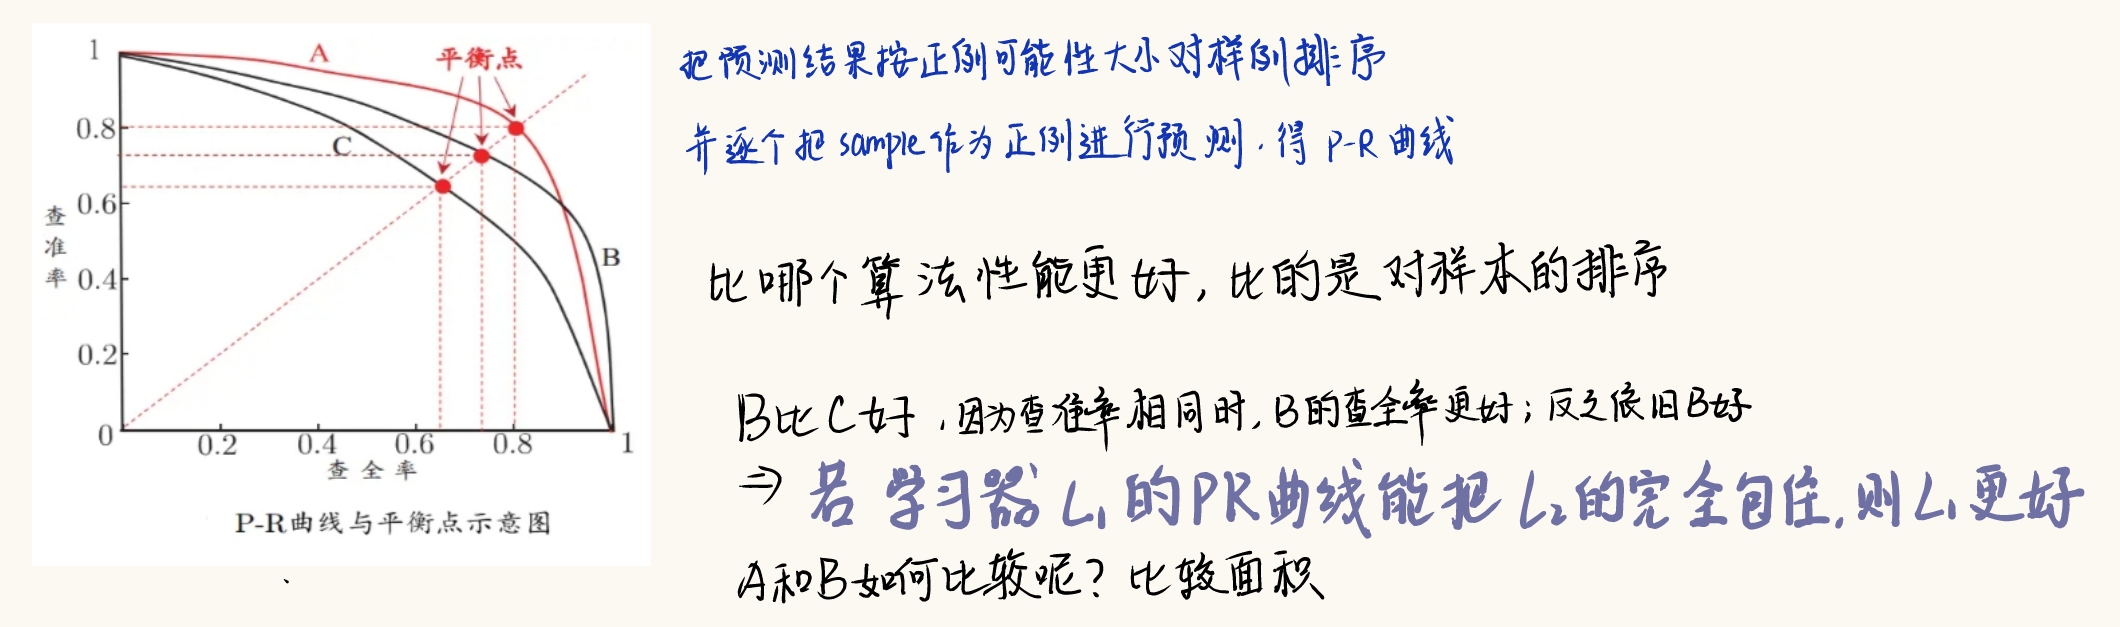 1
A
平衡点
0.8
C
0.6
查准率
B
0.4
0.2
0
0.2
0.4
0.6
0.8
1
查全率
P-R曲线与平衡点示意图
把预测结果按正例可能性大小对样例排序
并逐个把sample作为正例进行预测.得P-R曲线
比哪个算法性能更好,比的是对样本的排序
B比C好,因为查准率相同时,B的查全率更好;反之依旧B好
⇒ 若学习器L₁的PR曲线能把L₂的完全包住,则L₁更好
A和B如何比较呢?比较面积